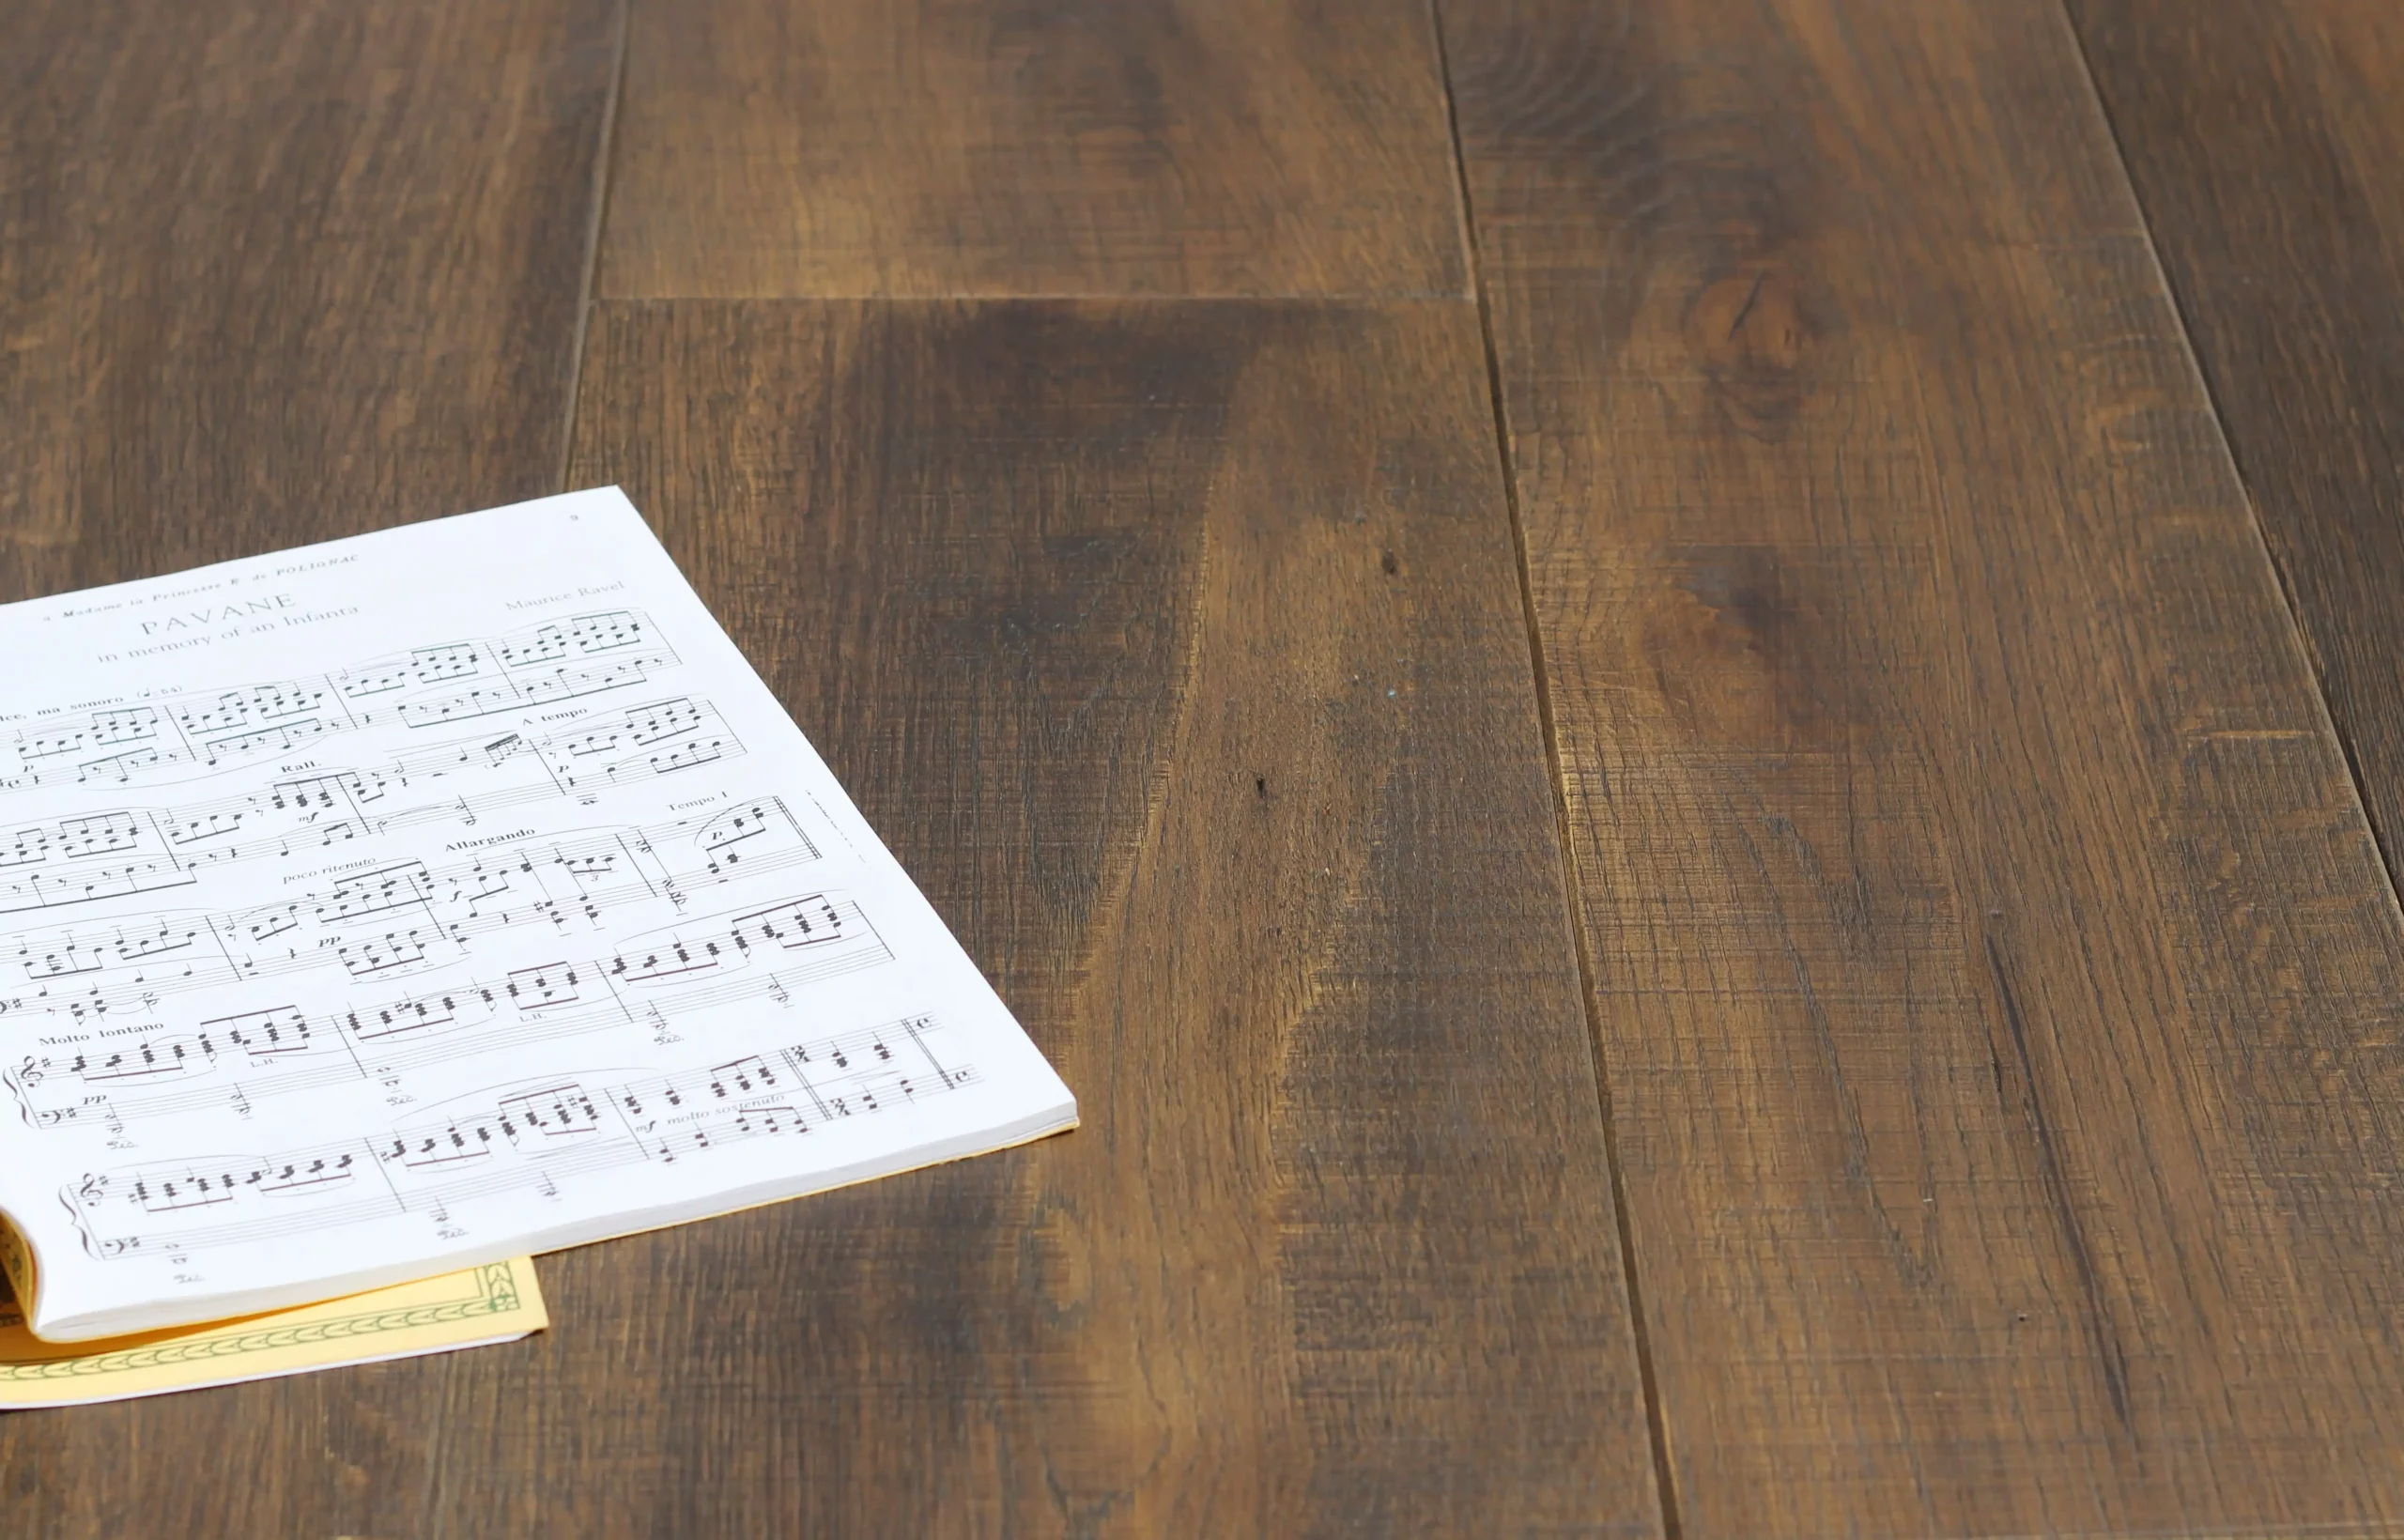 9
a Madame la Princesse E. de POLIGNAC
PAVANE
in memory of an Infanta
Maurice Ravel
ma sonoro (♩=54)
p
Rall.
A tempo
mf
p
poco ritenuto
Allargando
Tempo I
pp
f
3
p
Molto lontano
pp
L.H.
L.H.
Ped.
Ped.
Ped.
mf molto sostenuto
Ped.
Ped.